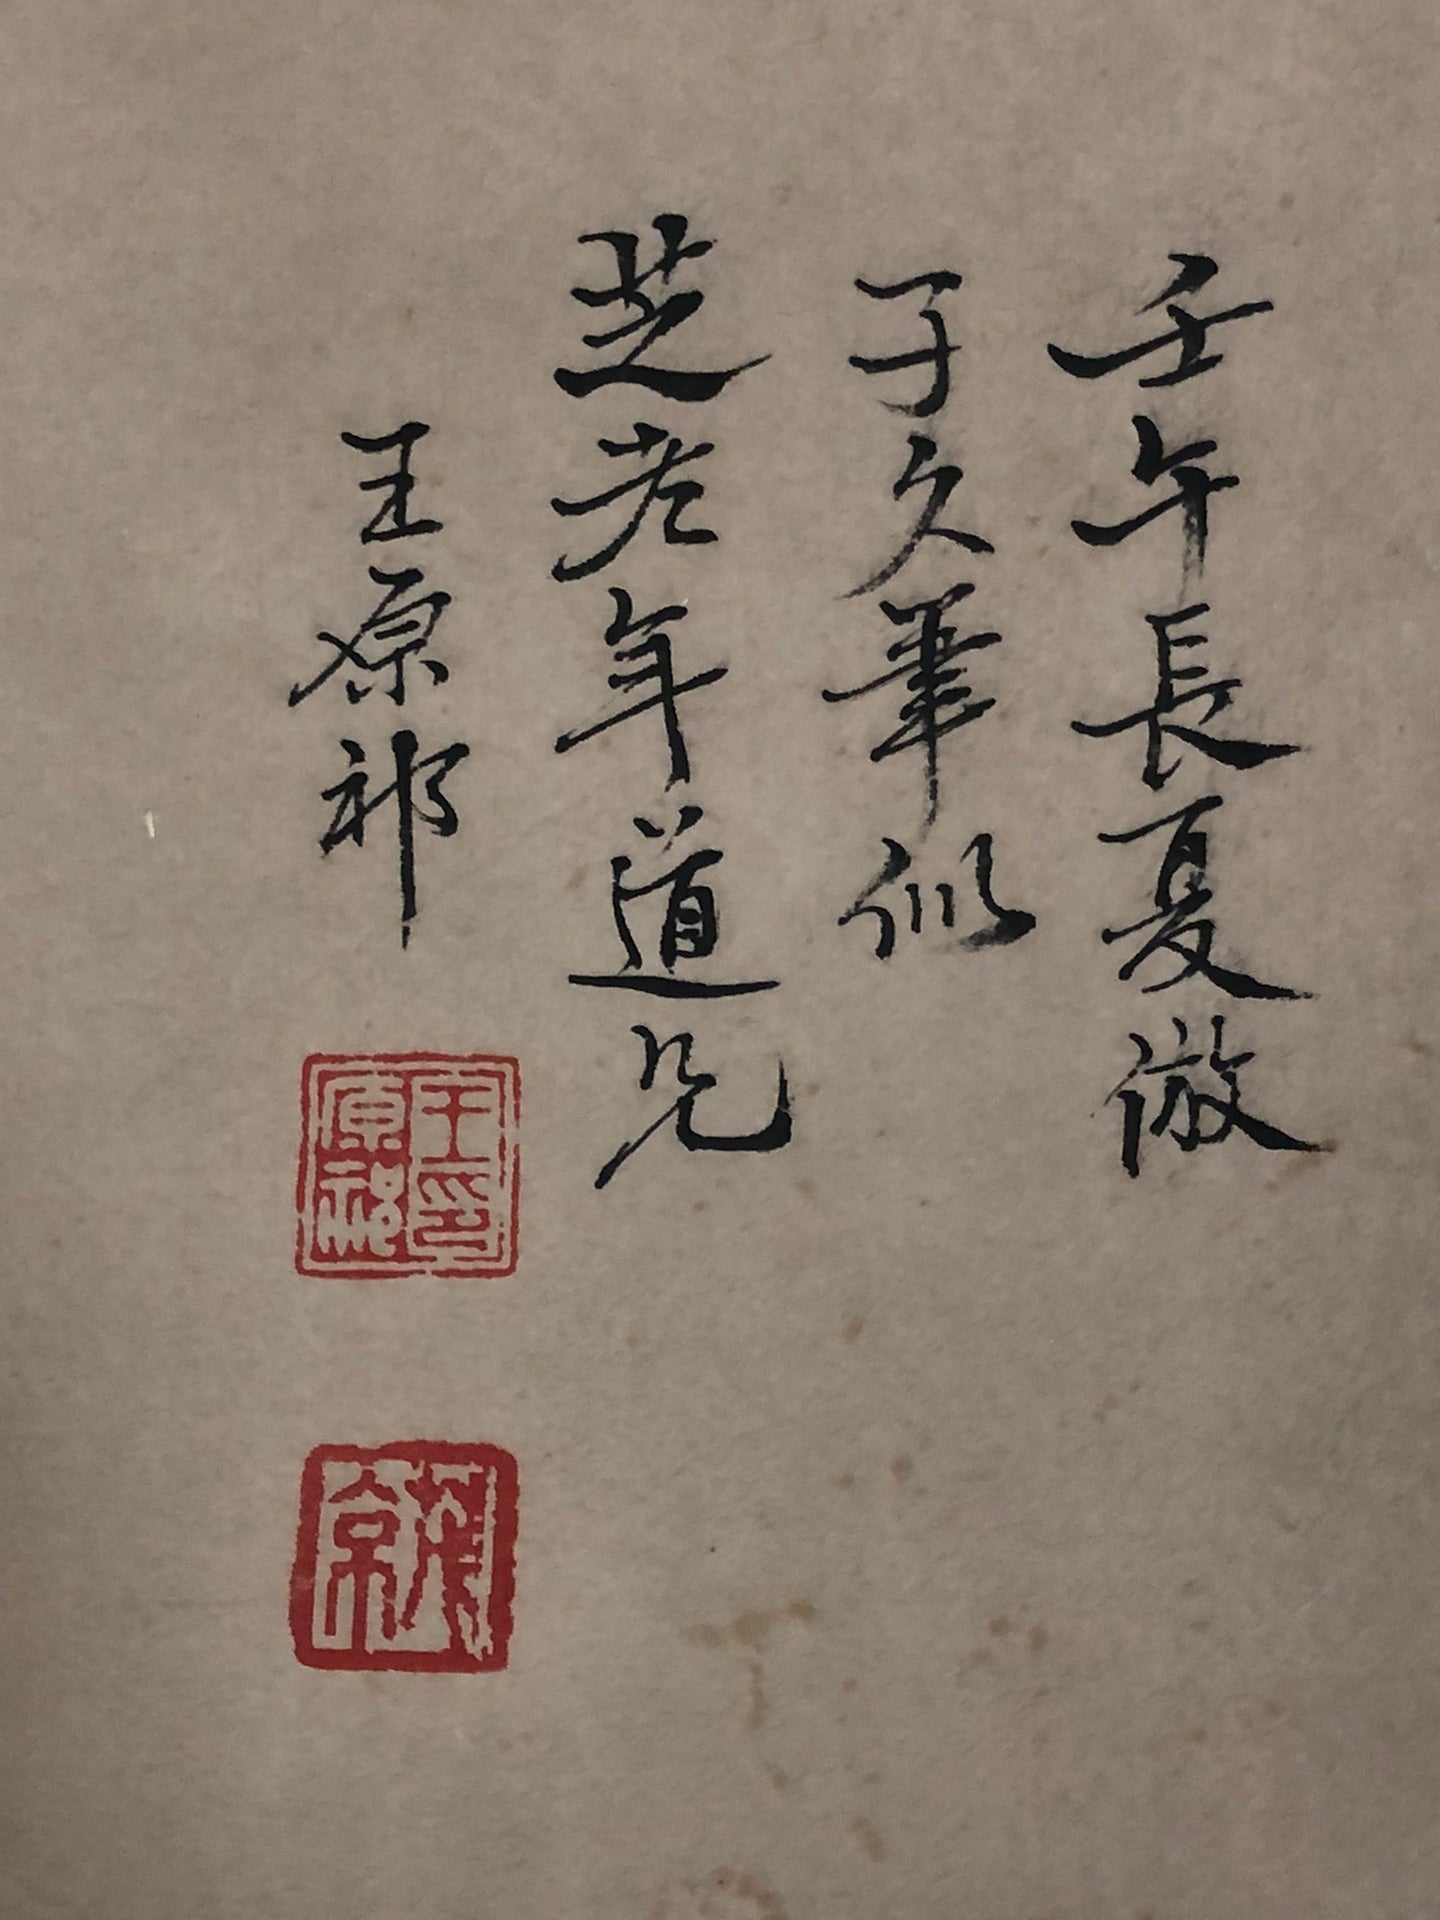 壬午長夏倣
子久筆似
芝老年道兄
王原祁
王原祁印
茂京